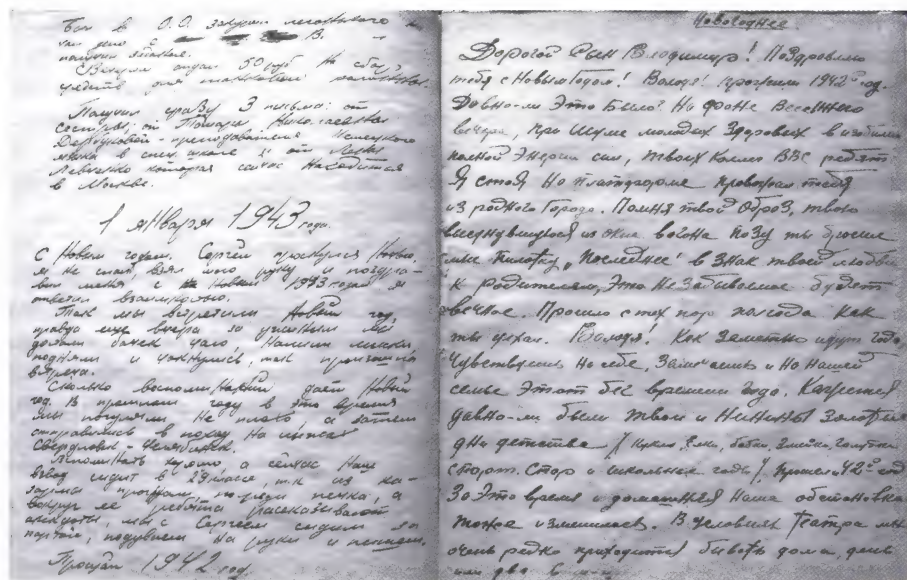 Был в О.О. закурил
чал дело с В.
получил задание.
Вечером отдал 50 руб
Получил сразу 3 письма: от
сестры; от Тамары Николаевны
преподавателя Немецкого
языка в спец. школе и от
которая сейчас находится
в Москве.
1 января 1943 года.
С Новым годом. Сергей проснулся
я не спал взял мою руку и поздра-
вил меня с Новым 1943 годом я
ответил взаимностью.
Так мы встретили Новый год,
правда еще вчера за ужином мы
бачек чаю, Налили миски,
подняли и чокнулись, так произошла
встреча.
Сколько воспоминаний дает Новый
год. В прошлом году в это время
мы погуляли Немного а затем
отправились в поход На лыжах
Свердловск - Челябинск.
Вспоминать хорошо, а сейчас Наш
взвод сидит в 29 классе, т.к из ка-
зармы прогнали, посреди печка, а
вокруг ее ребята рассказывают
анекдоты, мы с Сергеем сидим за
партой, подуваем На руки и пишем.
Прощай 1942 год.
Новогоднее
Дорогой Сын Владимир! Поздравляю
тебя с Новым Годом! Володя! прожили 1942й год.
Давно-ли Это Было? На фоне Весеннего
вечера, при Шуме молодых Здоровых в избытке
полной Энергии сил, твоих Коллег ВВС ребят
Я стоя На платформе провожал тебя
из родного Города. Помня твой Образ, твою
высунувшуюся из окна вагона позу ты бросил
мне пилотку „Последнее" в Знак твоей любви
к родителям, Это Незабываемое будет
вечное. Прошло с тех пор полгода Как
ты уехал. Володя! Как Заметно идут года
Чувствуешь На себе, Замечаешь и На Нашей
семье Этот бег времени года. Кажется
давно-ли были Твои и Нинины Золотые
дни детства / Куклы, Елки, бабки, Змейки, Голубки
спорт. Спор и школьные годы /, прошел 42й год
За Это время и домашняя Наша обстановка
тоже изменилась. В условиях Театра мне
очень редко приходится бывать дома, день
или два в